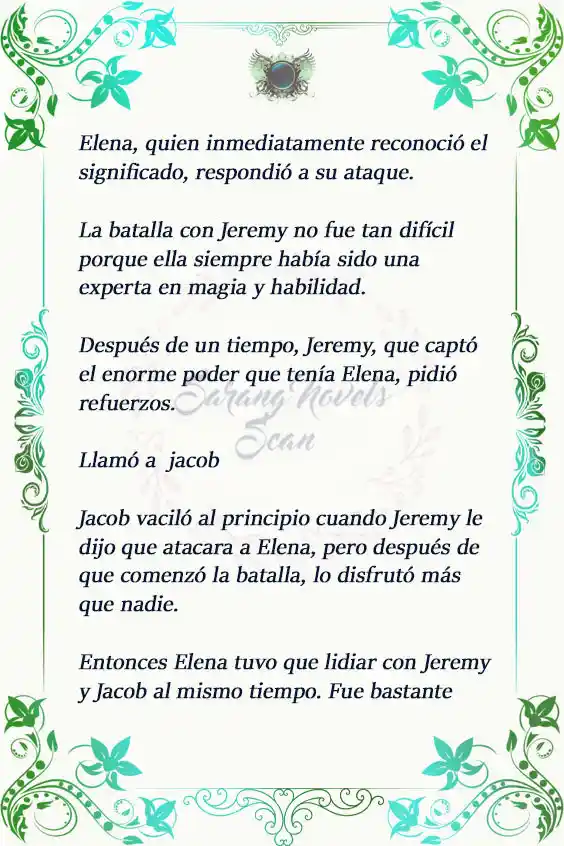 Elena, quien inmediatamente reconoció el
significado, respondió a su ataque.
La batalla con Jeremy no fue tan difícil
porque ella siempre había sido una
experta en magia y habilidad.
Después de un tiempo, Jeremy, que captó
el enorme poder que tenía Elena, pidió
refuerzos.
Sarang Novels
Scan
Llamó a  jacob
Jacob vaciló al principio cuando Jeremy le
dijo que atacara a Elena, pero después de
que comenzó la batalla, lo disfrutó más
que nadie.
Entonces Elena tuvo que lidiar con Jeremy
y Jacob al mismo tiempo. Fue bastante